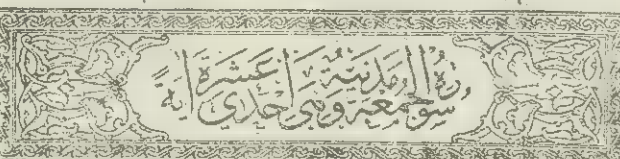 سورة الجمعة مدنية وهي احدى عشرة اية